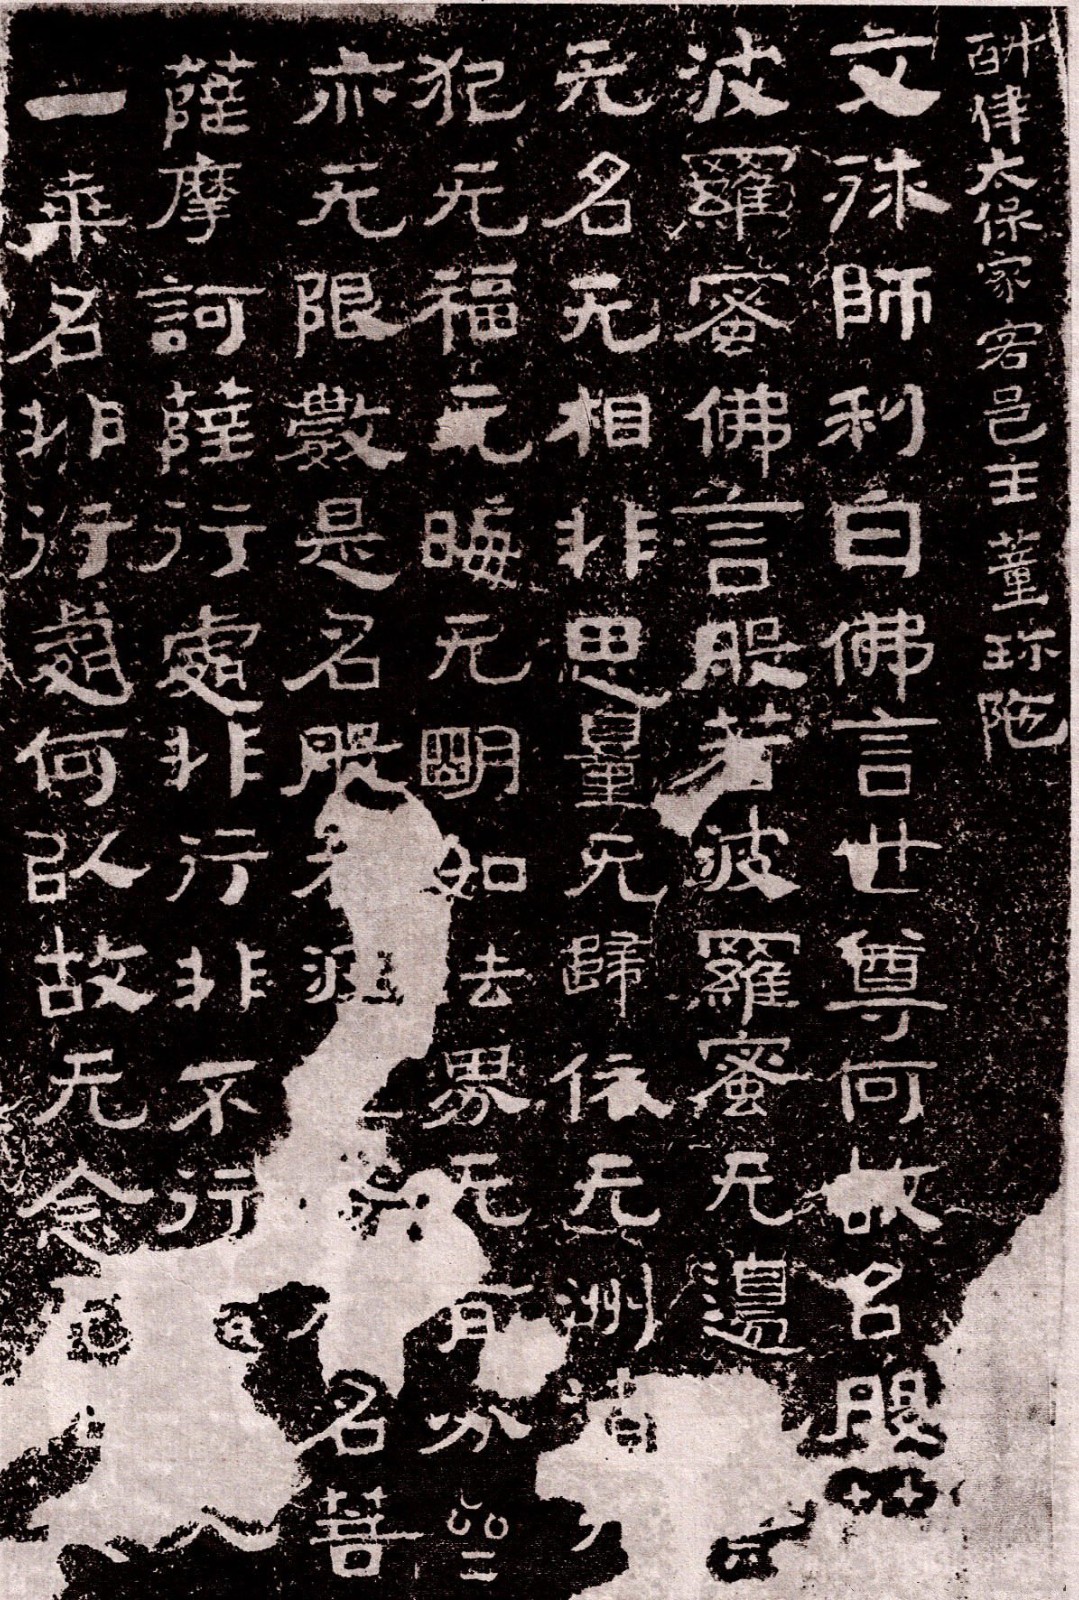 斛律太保家客邑主董珍陀
文殊師利白佛言世尊何故名般
波羅蜜佛言般若波羅蜜无邊
无名无相非思量无歸依无洲渚
犯无福无晦无明如法界无有分齊
亦无限數是名般若波名菩
薩摩訶薩行處非行非不行
一乘名非行處何以故无念